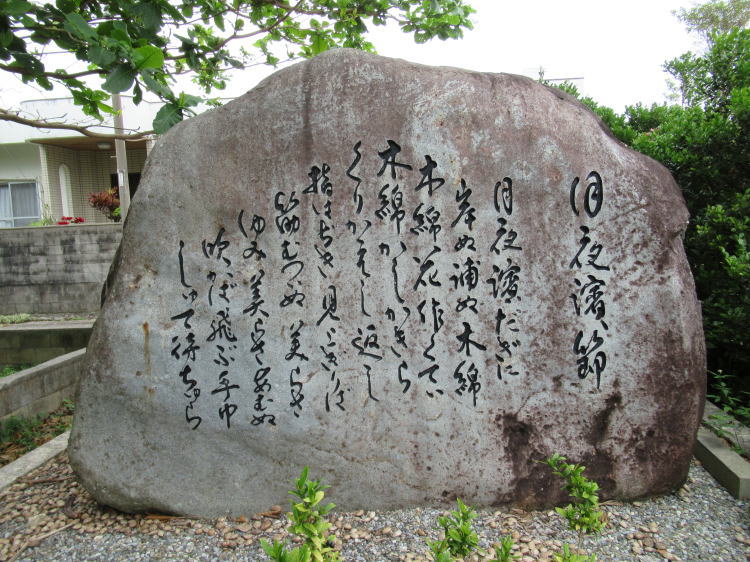 月夜濱節
月夜濱だきに
岸ぬ浦ぬ木綿
木綿花作くてぃ
木綿かしかきら
くりかえし返し
指はぢき見
筋むつぬ美らさ
ゆみ美らさあむぬ
吹かば飛ぶ手巾
しゅて待ちゅら